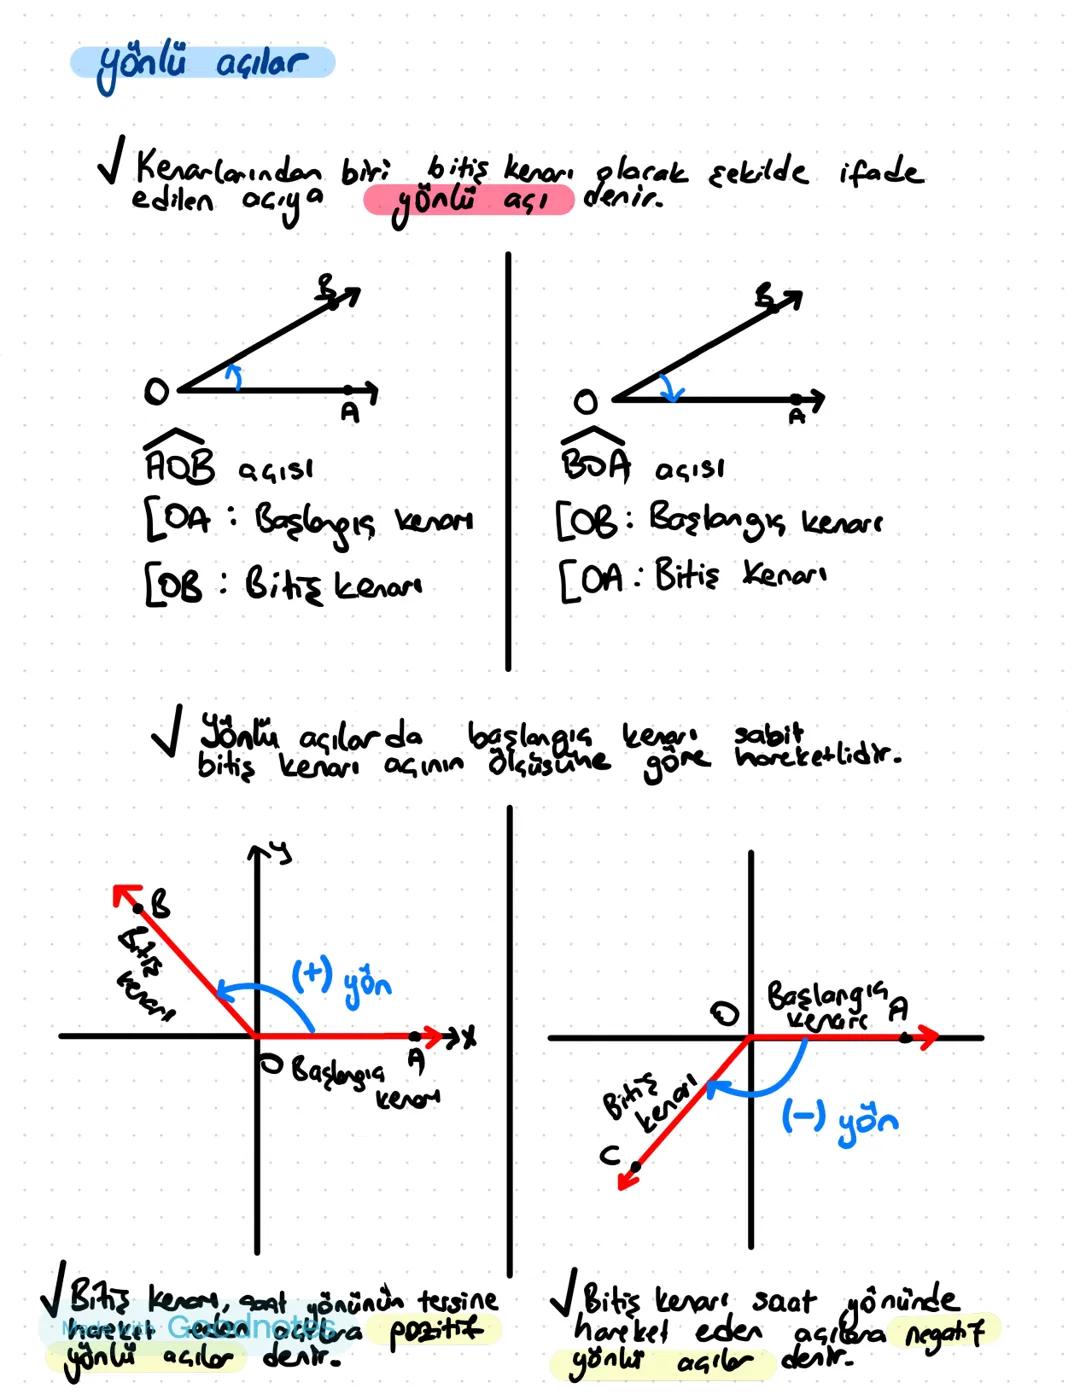 yönlü açılar
√ Kenarlarından biri bitiş kenarı olacak şekilde ifade
edilen açıya yönlü açı denir.
B
O
A
AOB açısı
[OA : Başlangıç kenarı
[OB : Bitiş kenarı
B
O
A
BOA açısı
[OB : Başlangıç kenarı
[OA : Bitiş kenarı
√ Yönlü açılarda başlangıç kenarı sabit
bitiş kenarı açının ölçüsüne göre hareketlidir.
y
B
Bitiş
kenarı
(+) yön
x
O
A
Başlangıç
kenarı
O
Başlangıç
kenarı
A
Bitiş
kenarı
C
(-) yön
√ Bitiş kenarı, saat yönünün tersine
hareket eden açılara pozitif
yönlü açılar denir.
√ Bitiş kenarı saat yönünde
hareket eden açılara negatif
yönlü açılar denir.
Made with Goodnotes